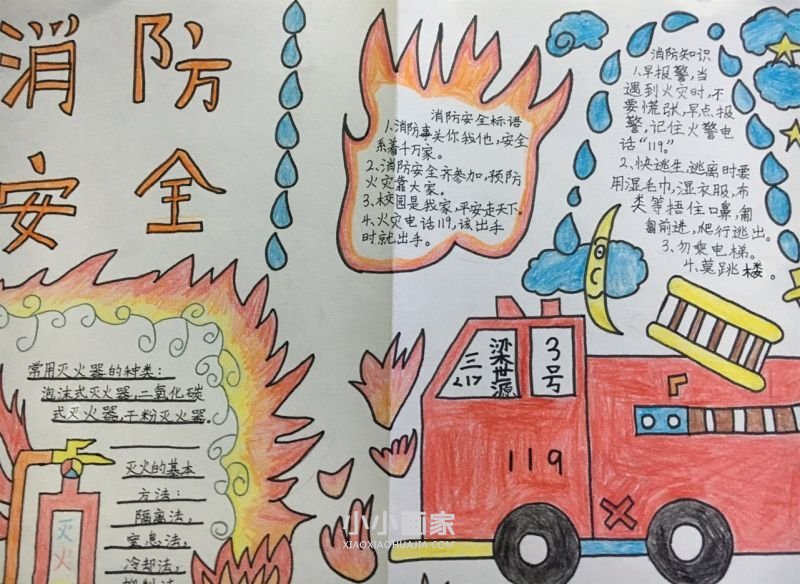 消防
安全
消防安全标语
1、消防事关你我他,安全
系着千万家。
2、消防安全齐参加,预防
火灾靠大家。
3、校园是我家,平安走天下。
4、火灾电话119,该出手
时就出手。
消防知识
1、早报警,当
遇到火灾时,不
要慌张,早点报
警,记住火警电
话“119。”
2、快逃生,逃离时要
用湿毛巾,湿衣服,布
类等捂住口鼻,匍
匐前进,爬行逃出。
3、勿乘电梯。
4、莫跳楼。
常用灭火器的种类:
泡沫式灭火器,二氧化碳
式灭火器,干粉灭火器。
灭火的基本
方法:
隔离法,
窒息法,
冷却法,
灭
火
三
217
梁世源
3
号
119
小小画家
XIAOXIAOHUAJIA.COM